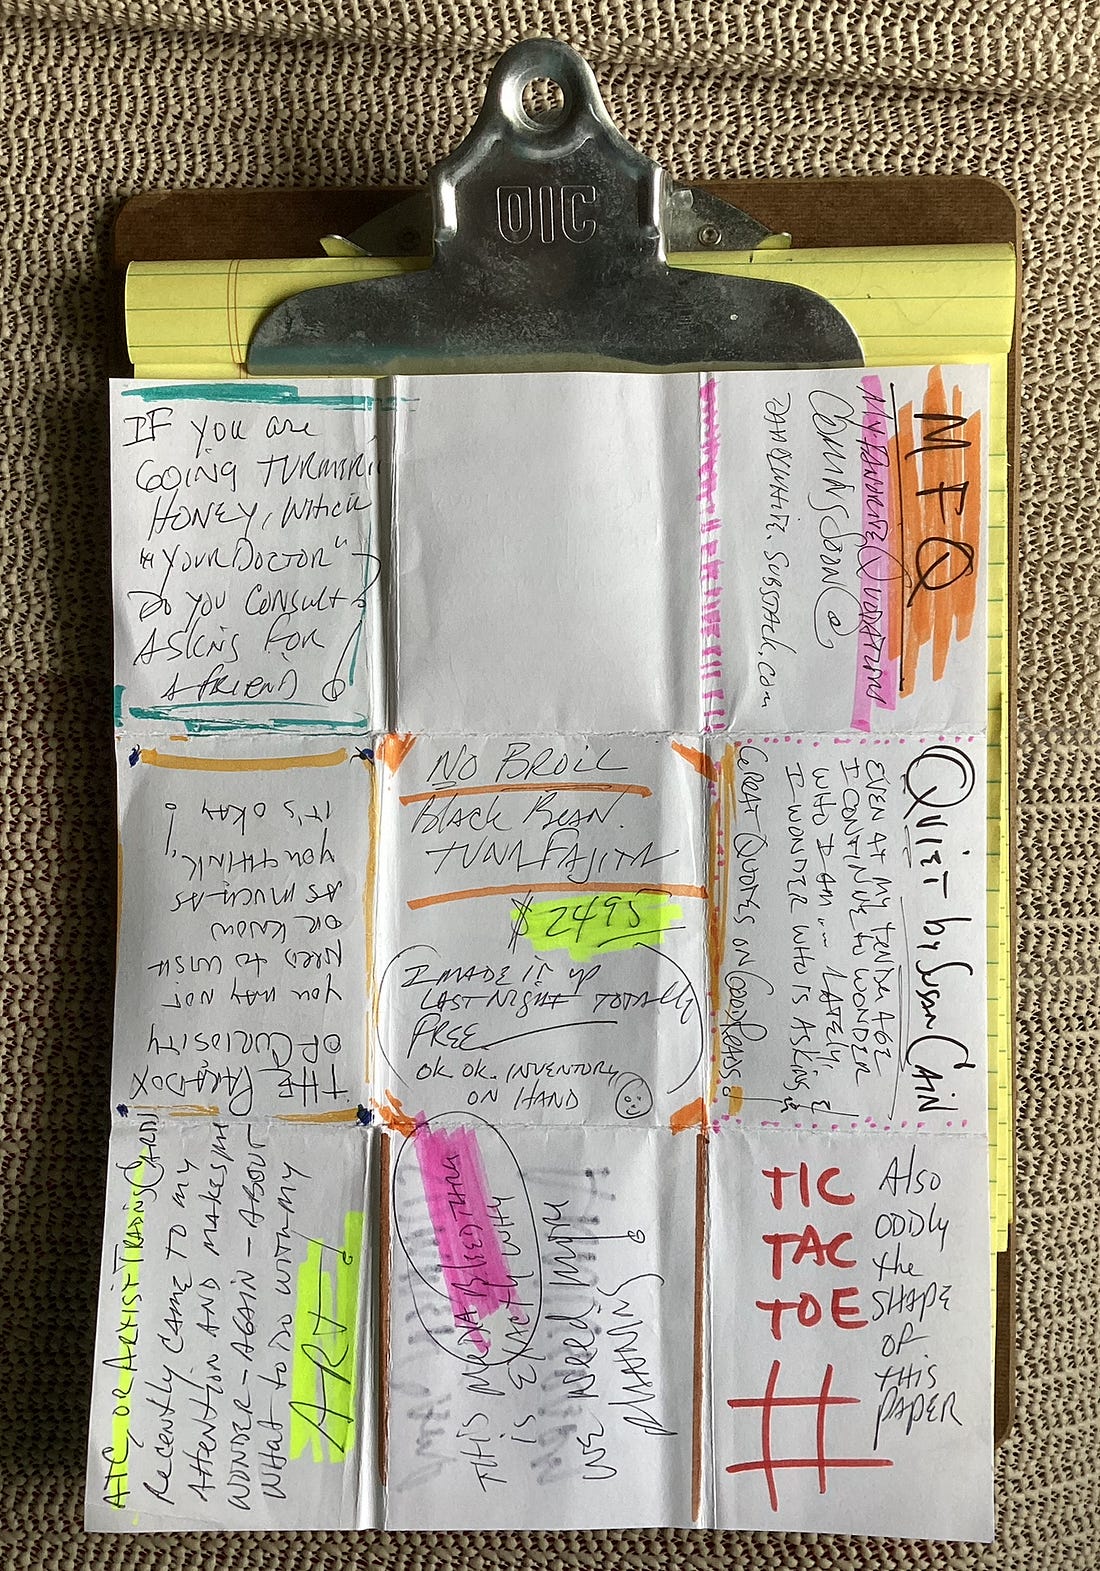 OIC
IF YOU ARE
GOING TURMERIC
HONEY, WHICH
"YOUR DOCTOR"
DO YOU CONSULT?
ASKING FOR
A FRIEND
MFQ
MY FAVORITE QUOTATIONS
COMING SOON @
.SUBSTACK.COM
THE PARADOX
OF CURIOSITY
YOU MAY NOT
NEED TO WISH
OR KNOW
AS MUCH AS
YOU THINK,
IT'S OKAY
NO BROIL
BLACK BEAN
TUNA FAJITA
$2495
I MADE IT UP
LAST NIGHT TOTALLY
FREE
OK OK. INVENTORY
ON HAND
QUIET by SUSAN CAIN
EVEN AT MY TENDER AGE
I CONTINUE TO WONDER
WHO I AM ... LATELY
I WONDER WHO IS ASKING
GREAT QUOTES ON GOODREADS
ATC OR ARTIST TRADING CARDS
RECENTLY CAME TO MY
ATTENTION AND MAKES ME
WONDER - AGAIN - ABOUT
WHAT TO DO WITH MY
ART
THIS MEDIA BLEED THRU
IS EXACTLY WHY
WE NEED MORE
PLANNING
TIC
TAC
TOE
Also
ODDLY
the
SHAPE
OF
THIS
PAPER